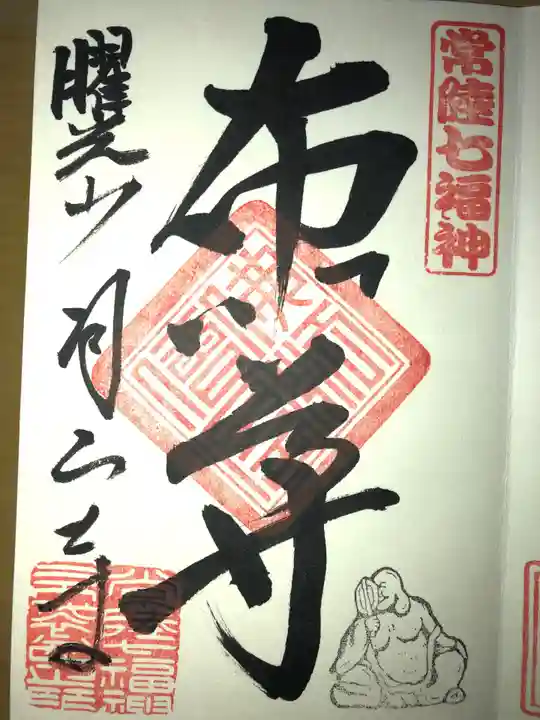 常陸七福神
布袋尊
曜光山 月山寺